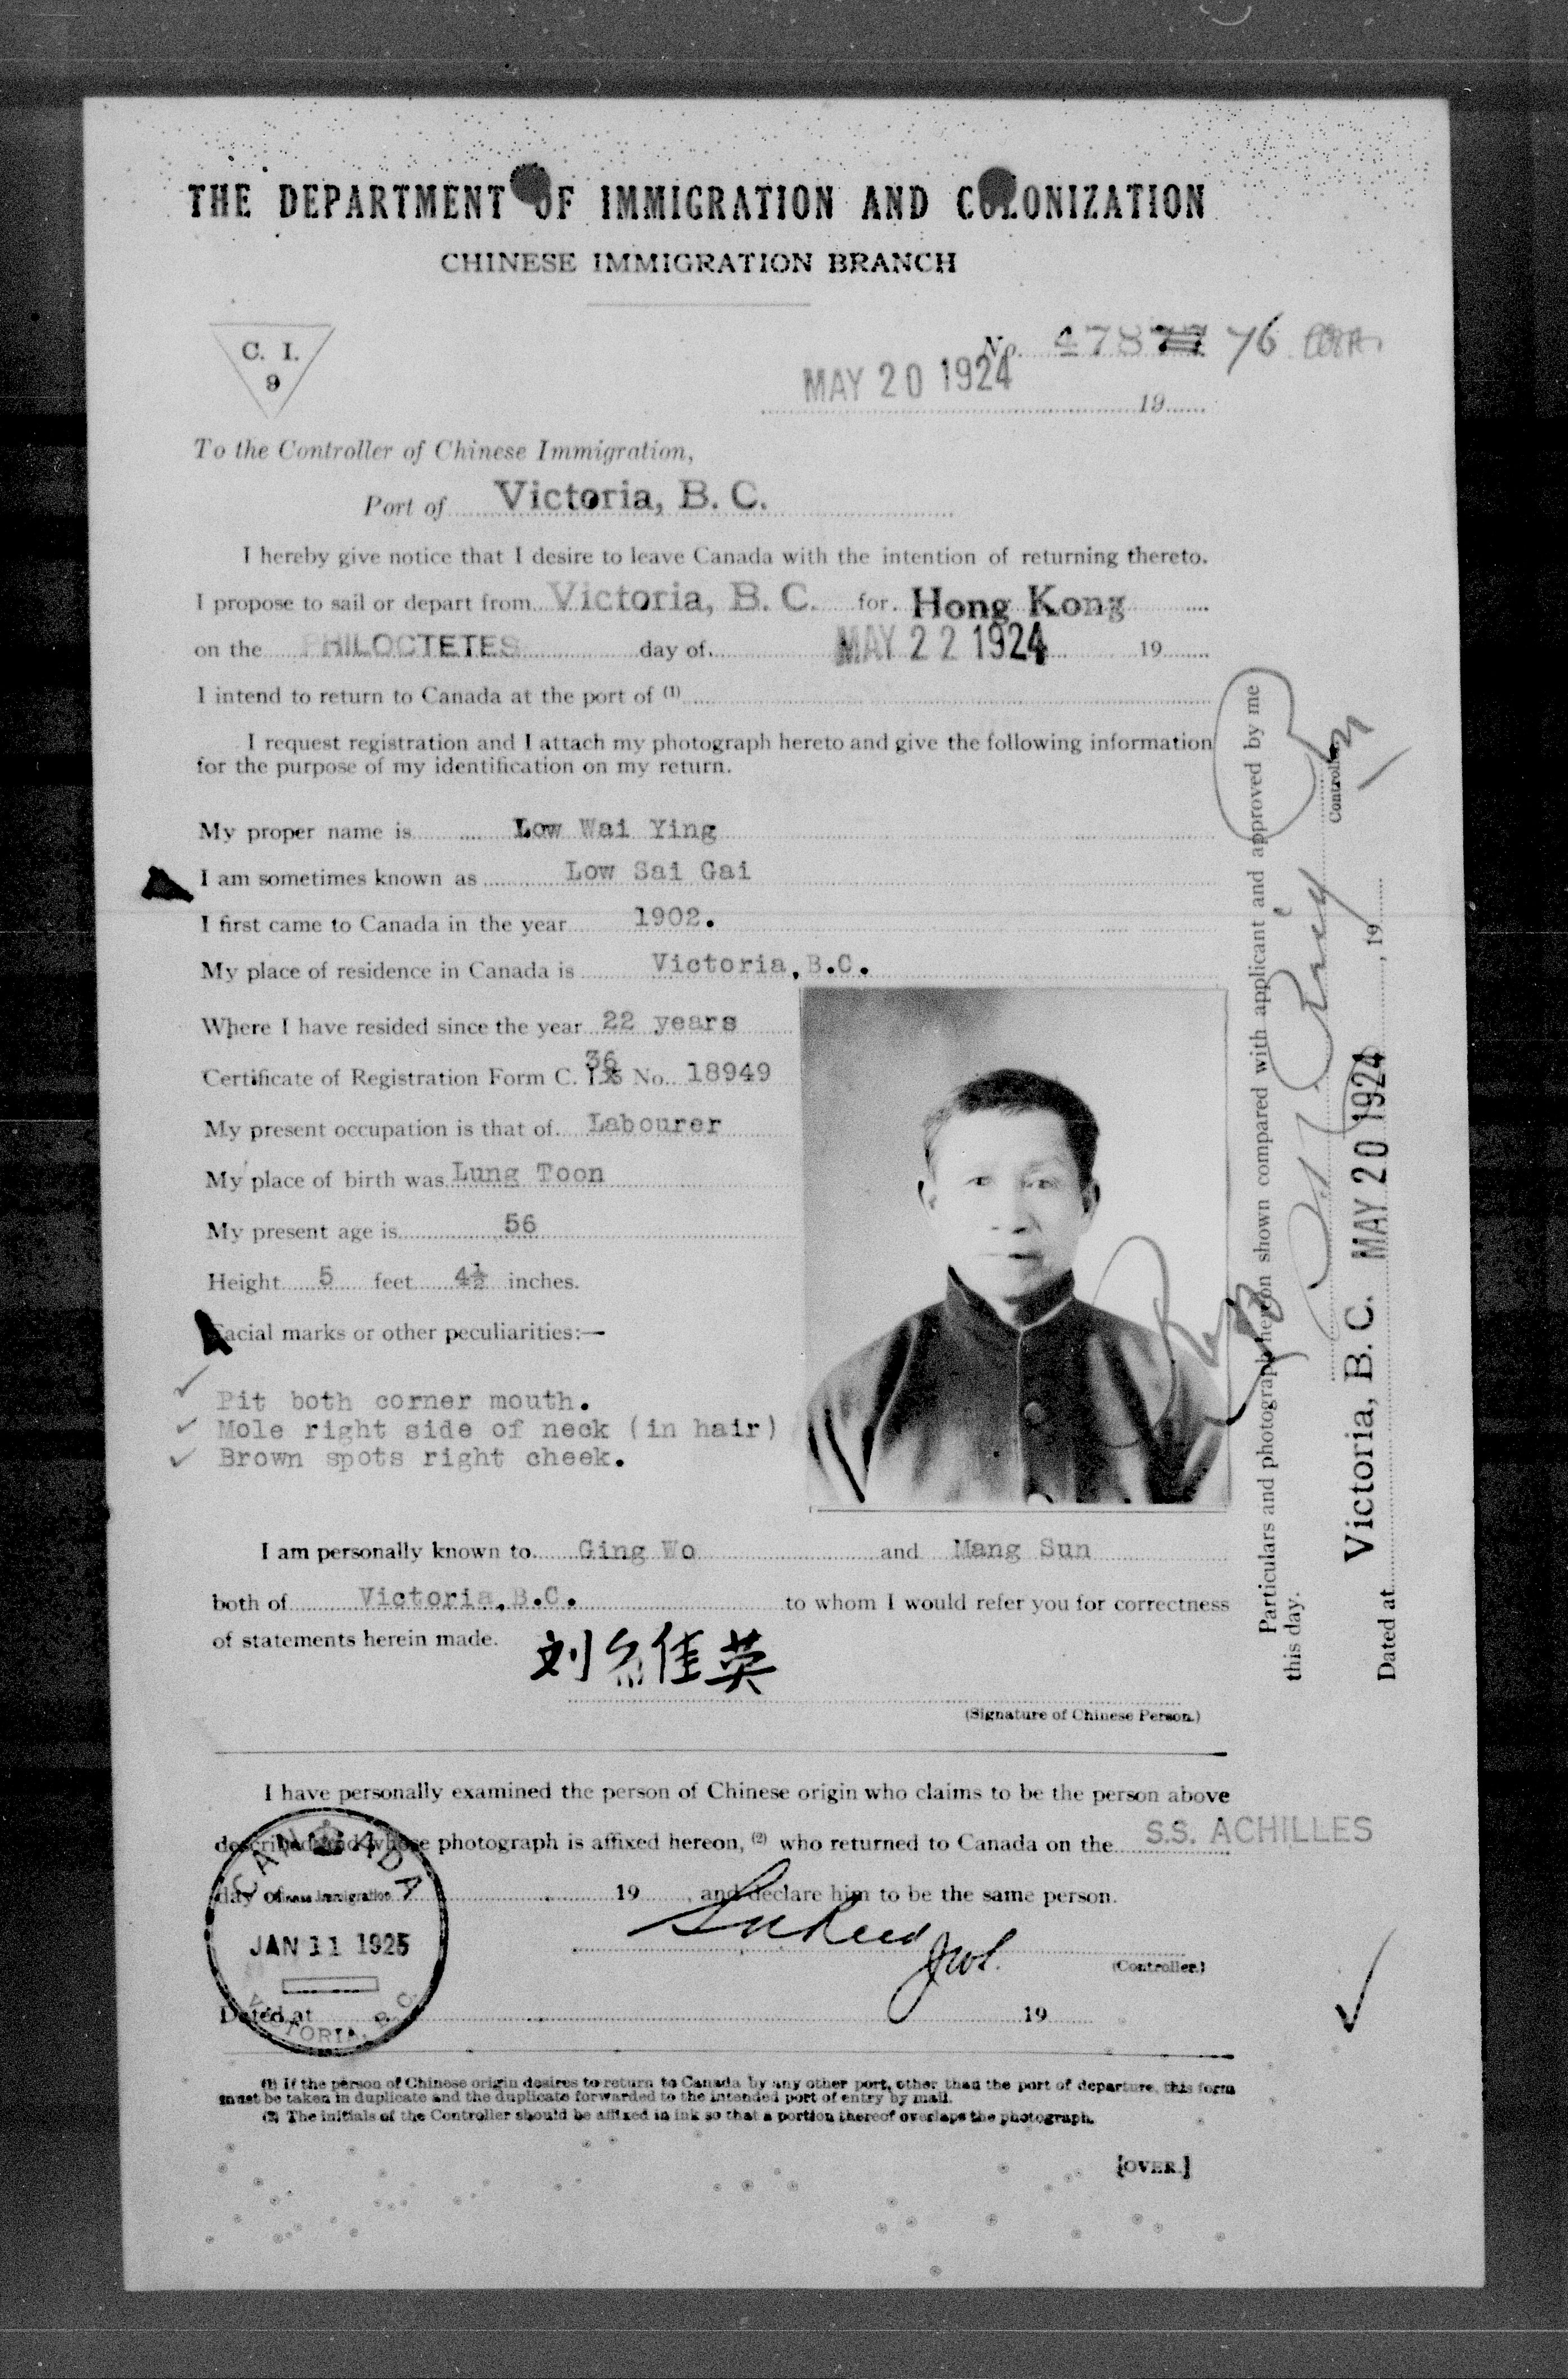 THE DEPARTMENT OF IMMIGRATION AND COLONIZATION
CHINESE IMMIGRATION BRANCH
C. I.
9
No. 478 76
MAY 20 1924 19
To the Controller of Chinese Immigration,
Port of Victoria, B. C.
I hereby give notice that I desire to leave Canada with the intention of returning thereto.
I propose to sail or depart from Victoria, B. C. for Hong Kong
on the PHILOCTETES day of MAY 22 1924 19
I intend to return to Canada at the port of (1)
I request registration and I attach my photograph hereto and give the following information
for the purpose of my identification on my return.
My proper name is Low Wai Ying
I am sometimes known as Low Sai Gai
I first came to Canada in the year 1902.
My place of residence in Canada is Victoria, B.C.
Where I have resided since the year 22 years
Certificate of Registration Form C. I. 36 No. 18949
My present occupation is that of Labourer
My place of birth was Lung Toon
My present age is 56
Height 5 feet 4½ inches.
Facial marks or other peculiarities:—
Pit both corner mouth.
Mole right side of neck (in hair)
Brown spots right cheek.
I am personally known to Ging Wo and Mang Sun
both of Victoria, B.C. to whom I would refer you for correctness
of statements herein made.
刘 佳英
(Signature of Chinese Person.)
I have personally examined the person of Chinese origin who claims to be the person above
described and whose photograph is affixed hereon, (2) who returned to Canada on the S.S. ACHILLES
day of 19 , and declare him to be the same person.
(Controller.)
Dated at 19
CANADA
Chinese Immigration
JAN 11 1925
VICTORIA, B.C.
(1) If the person of Chinese origin desires to return to Canada by any other port, other than the port of departure, this form
must be taken in duplicate and the duplicate forwarded to the intended port of entry by mail.
(2) The initials of the Controller should be affixed in ink so that a portion thereof overlaps the photograph.
[OVER.]
Particulars and photograph hereon shown compared with applicant and approved by me
this day.
Controller
Dated at Victoria, B. C. MAY 20 1924, 19